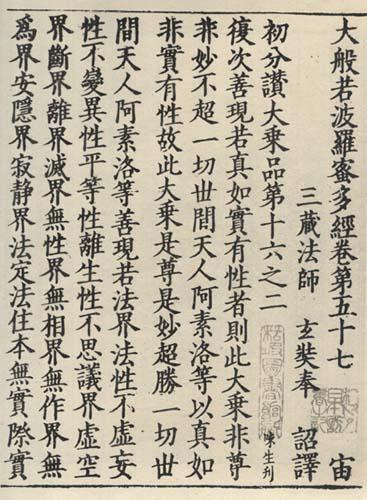 大般若波羅蜜多經卷第五十七 宙
三藏法師 玄奘奉 詔譯
初分讚大乘品第十六之二
陳生刊
復次善現若真如實有性者則此大乘非尊
非妙不超一切世間天人阿素洛等以真如
非實有性故此大乘是尊是妙超勝一切世
間天人阿素洛等善現若法界法性不虛妄
性不變異性平等性離生性不思議界虛空
界斷界離界滅界無性界無相界無作界無
爲界安隱界寂靜界法定法住本無實際實